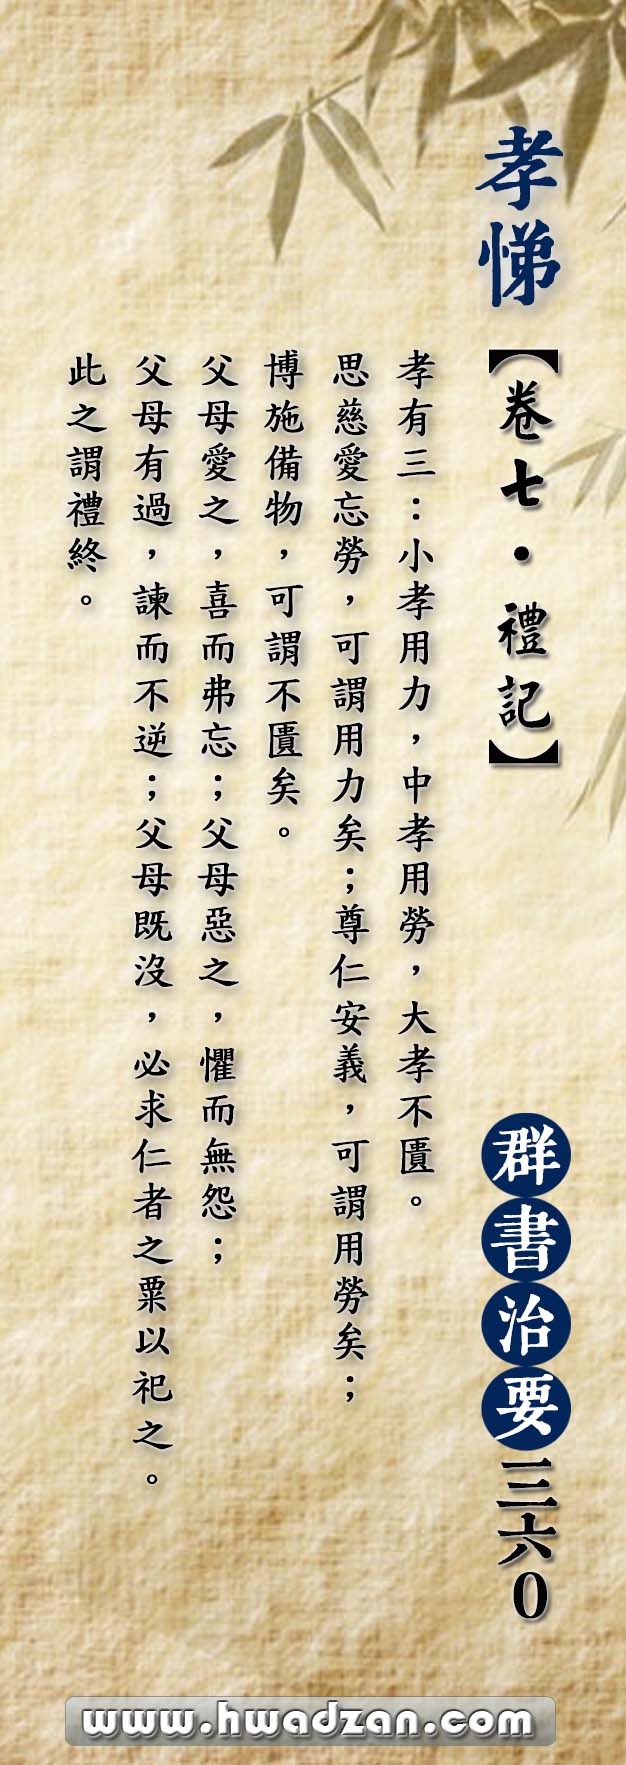 孝悌
【卷七・禮記】
群書治要三六0
孝有三：小孝用力，中孝用勞，大孝不匱。
思慈愛忘勞，可謂用力矣；尊仁安義，可謂用勞矣；
博施備物，可謂不匱矣。
父母愛之，喜而弗忘；父母惡之，懼而無怨；
父母有過，諫而不逆；父母既沒，必求仁者之粟以祀之。
此之謂禮終。
www.hwadzan.com